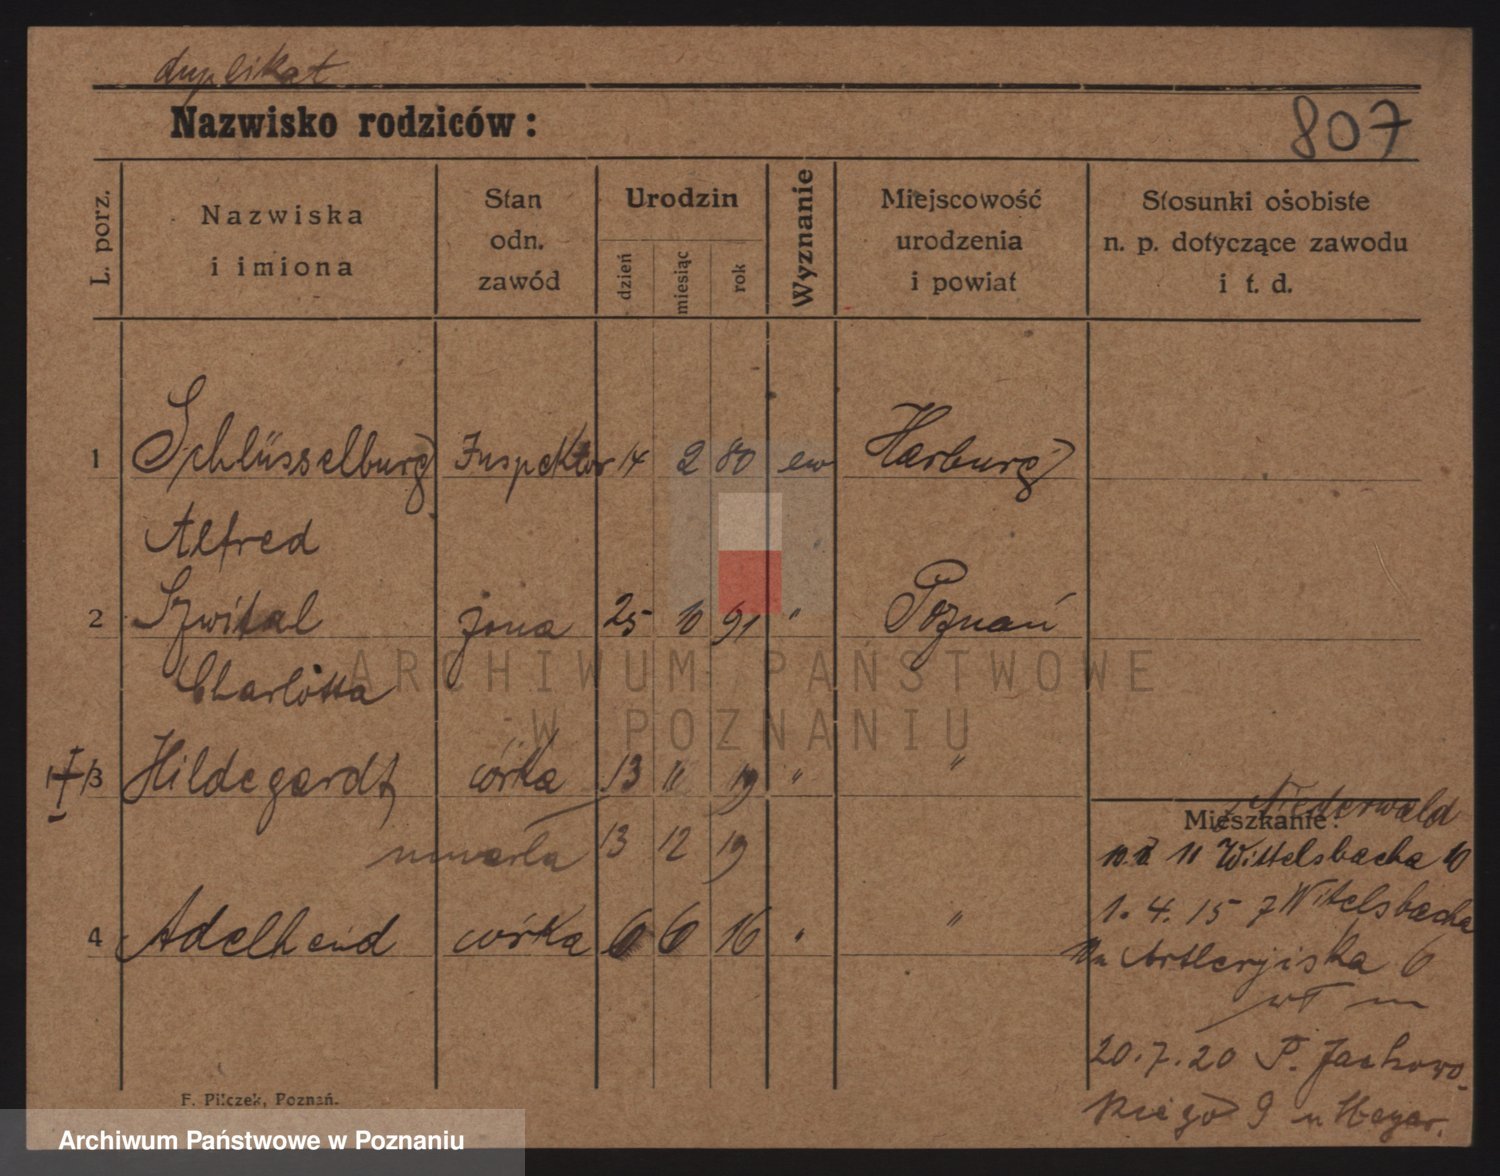 duplikat
Nazwisko rodziców:
807
L. porz.
Nazwiska
i imiona
Stan
odn.
zawód
Urodzin
dzień
miesiąc
rok
Wyznanie
Miejscowość
urodzenia
i powiat
Stosunki osobiste
n. p. dotyczące zawodu
i t. d.
1 Schlüsselburg Inspektor 14 2 80 ew Harburg
Alfred
2 Szwital żona 25 10 91 " Poznań
Charlotta
3 Hildegardt córka 13 11 19 " "
umarła 13 12 19
4 Adelheid córka 6 6 16 " "
Niederwald
Mieszkanie:
11 Wittelsbacha 10
1. 4. 15 7 Witelsbacha
Artleryjiska 6
20.7.20 P. Jackowo-
skiego 9 u Heyer.
F. Pilczek, Poznań.
ARCHIWUM PAŃSTWOWE
W POZNANIU
Archiwum Państwowe w Poznaniu